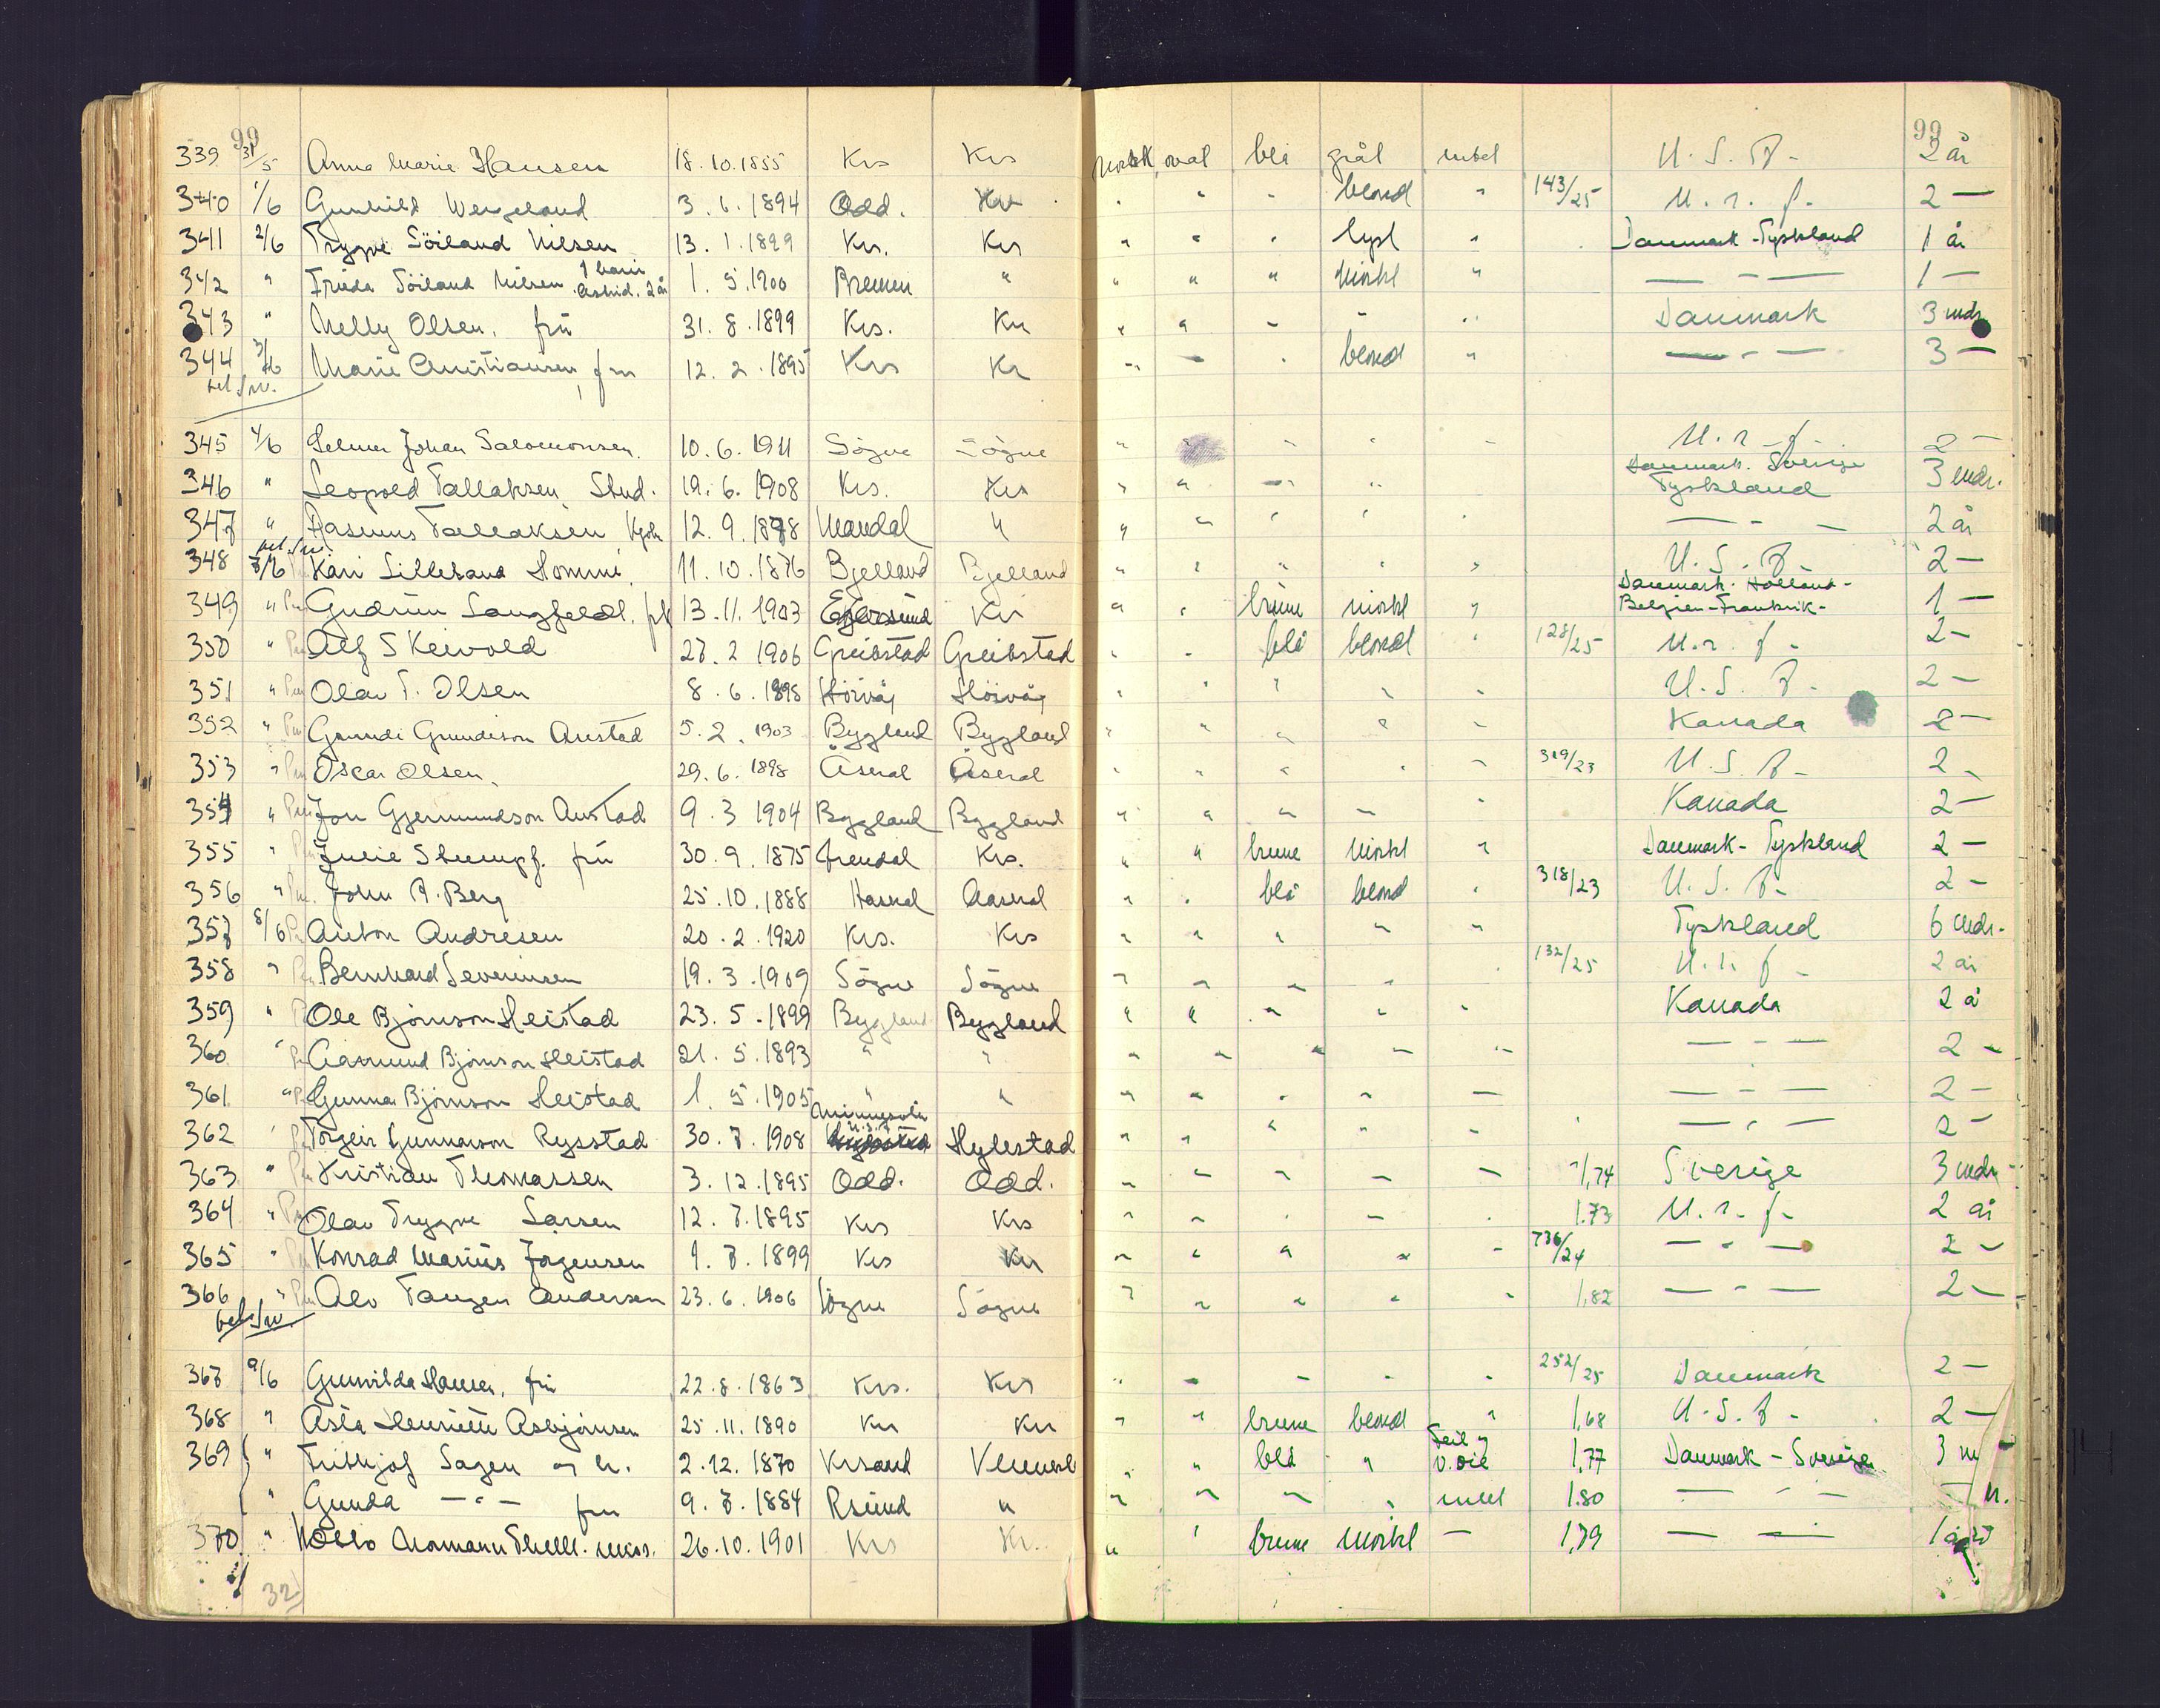 99 99
339 31/5 Anna Marie Hansen 18.10.1855 Krs Krs Norsk oval blå grål intet U.S.A. 2 år
340 1/6 Gunhild Wergeland 3.6.1894 Odd. Krs " " " blond " 143/25 U.r.f. 2 —
341 2/6 Trygve Söiland Nilsen 13.1.1899 Krs. Krs " " " lyst " Danmark - Tyskland 1 år
342 " Frieda Söiland Nilsen 1 barn Astrid. 2 år 1.5.1900 Bremen " " " " mörkt " — - — 1 —
343 " Nelly Olsen, frü 31.8.1899 Krs. Krs " " " " " Danmark 3 mdr
344 3/6 Marie Christiansen, fru 12.2.1895 Krs Kr " " " blond " — - — 3 —
345 4/6 Selmer Johan Salomonsen. 10.6.1911 Sögne Sögne " " " " U.r.f. 2 —
346 " Leopold Tallaksen Stud. 19.6.1908 Krs. Krs " " " " Danmark. Sverige Tyskland 3 mdr.
347 " Rasmus Tallaksen Kjøbm 12.9.1878 Mandal " " " " " " — - — 2 år
348 7/6 Kari Lilleland Homme. 11.10.1876 Bjelland Bjelland " " " " " U.S.A. 2 —
349 " Gudrun Langfeldt, frk 13.11.1903 Egersund Krs " " brune mörkt " Danmark. Holland - Belgien - Frankrik - 1 —
350 " Alf Skeivold 27.2.1906 Greibstad Greibstad " " blå blondt " 128/25 U.r.f. 2 —
351 " Olav T. Olsen 8.6.1898 Höivåg Höivåg " " " " " U.S.A. 2 —
352 " Gunndi Gunndison Austad 5.2.1903 Bygland Bygland " " " " " Kanada 2 —
353 " Oscar Olsen. 29.6.1898 Åseral Åseral " " " " " 319/23 U.S.A. 2 —
354 " Jon Gjermundson Austad 9.3.1904 Bygland Bygland " " " " " Kanada 2 —
355 " Julie Stumpf. frü 30.9.1875 Arendal Krs. " " brune mörkt " Danmark - Tyskland 2 —
356 " John A. Berg 25.10.1888 Aaseral Aaseral " " blå blond " 318/23 U.S.A. 2 —
357 8/6 Anton Andresen 20.2.1920 Krs. Krs " " " " " Tyskland 6 mdr.
358 " Bernhard Severinsen 19.3.1909 Sögne Sögne " " " " " 132/25 U.r.f. 2 år
359 " Ole Björnson Heistad 23.5.1899 Bygland Bygland " " " " " Kanada 2 å
360 " Aasmund Björnson Heistad 21.5.1893 " " " " " " " — - — 2 —
361 " Gunnar Björnson Heistad 1.5.1905 " " " " " " " — - — 2 —
362 " Torgeir Gunnarson Rysstad 30.7.1908 Minnesota U.S.A. Hylestad " " " " " — - — 2 —
363 " Kristian Thomassen 3.12.1895 Odd. Odd. " " " " " 1,74 Sverige 3 mdr
364 " Olav Trygve Larsen 12.7.1895 Krs Krs " " " " " 1.73 U.r.f. 2 år
365 " Konrad Marius Jörgensen 1.7.1899 Krs Krs " " " " " 736/24 — - — 2 —
366 " Alv Tangen Andersen 23.6.1906 Sögne Sögne " " " " " 1,82 — - — 2 —
367 9/6 Gunvilda Hansen, frü 22.8.1863 Krs. Krs " " " " " 252/25 Danmark 2 —
368 " Asta Henriette Asbjörnsen 25.11.1890 Krs Krs " " brune blond " 1,68 U.S.A. 2 —
369 " Frithjof Sagen og h. 2.12.1870 Krsand Vennesl " " blå " Feil v. öie 1,77 Danmark - Sverige 3 m
" Gunda — " — fru 9.7.1884 Krsund " " " " " intet 1.80 — - —
370 " 26.10.1901 Krs Kr. " " brune mörkt — 1,79 — —
32